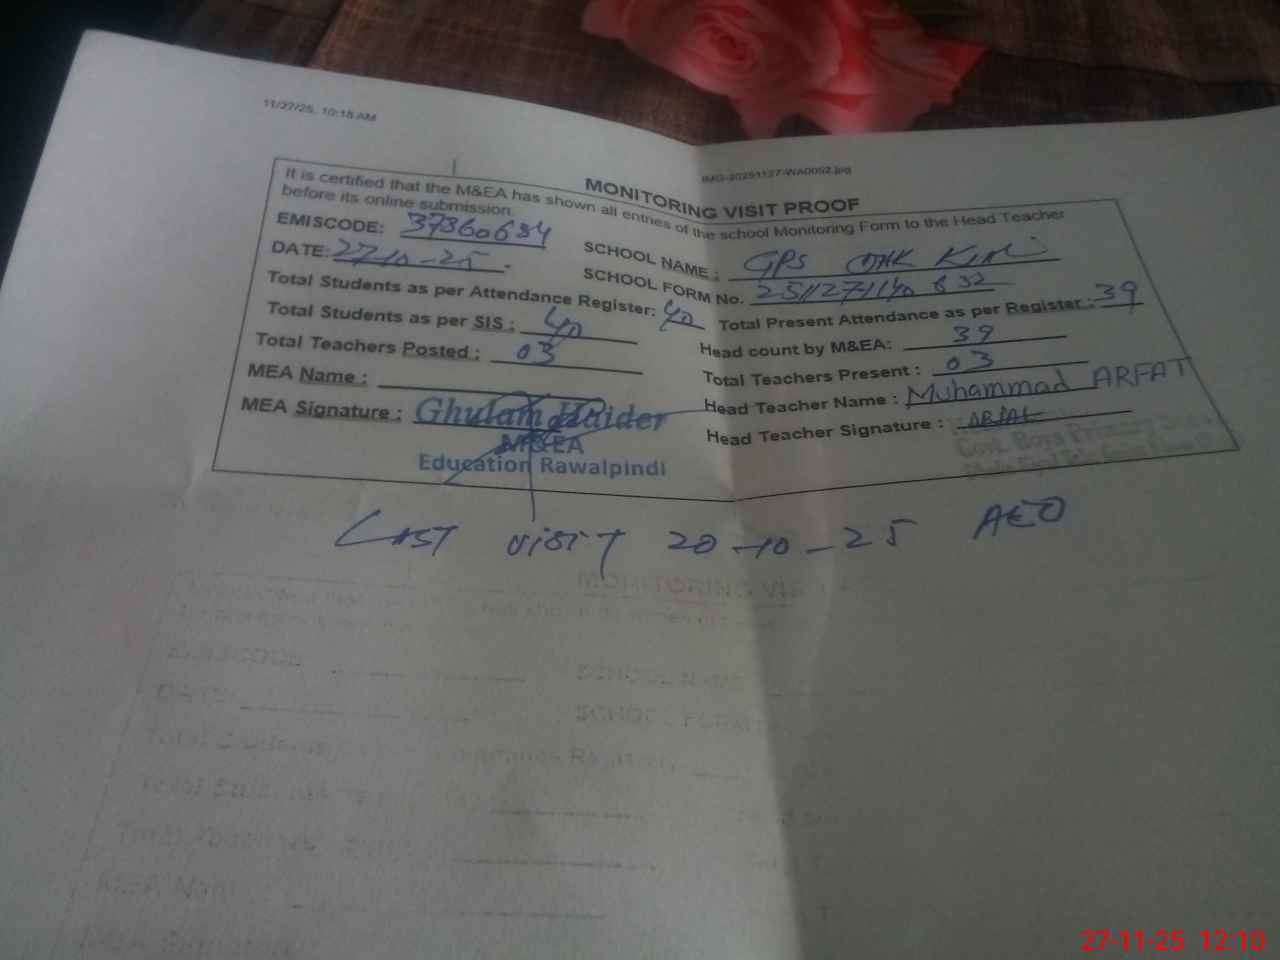 11/27/25, 10:18 AM
IMG-20251127-WA0052.jpg
MONITORING VISIT PROOF
It is certified that the M&EA has shown all entries of the school Monitoring Form to the Head Teacher
before its online submission.
EMISCODE: 37360634
SCHOOL NAME : GPS
DATE: 27-10-25
SCHOOL FORM No. 251127
Total Students as per Attendance Register: 40 Total Present Attendance as per Register : 39
Total Students as per SIS : 40 Head count by M&EA: 39
Total Teachers Posted : 03 Total Teachers Present : 03
MEA Name : Head Teacher Name : Muhammad ARFAT
MEA Signature : Ghulam Haider Head Teacher Signature : ARFAT
M&EA
Education Rawalpindi
Govt. Boys Primary
Last visit 20-10-25 AEO
MONITORING VIS
27-11-25 12:10